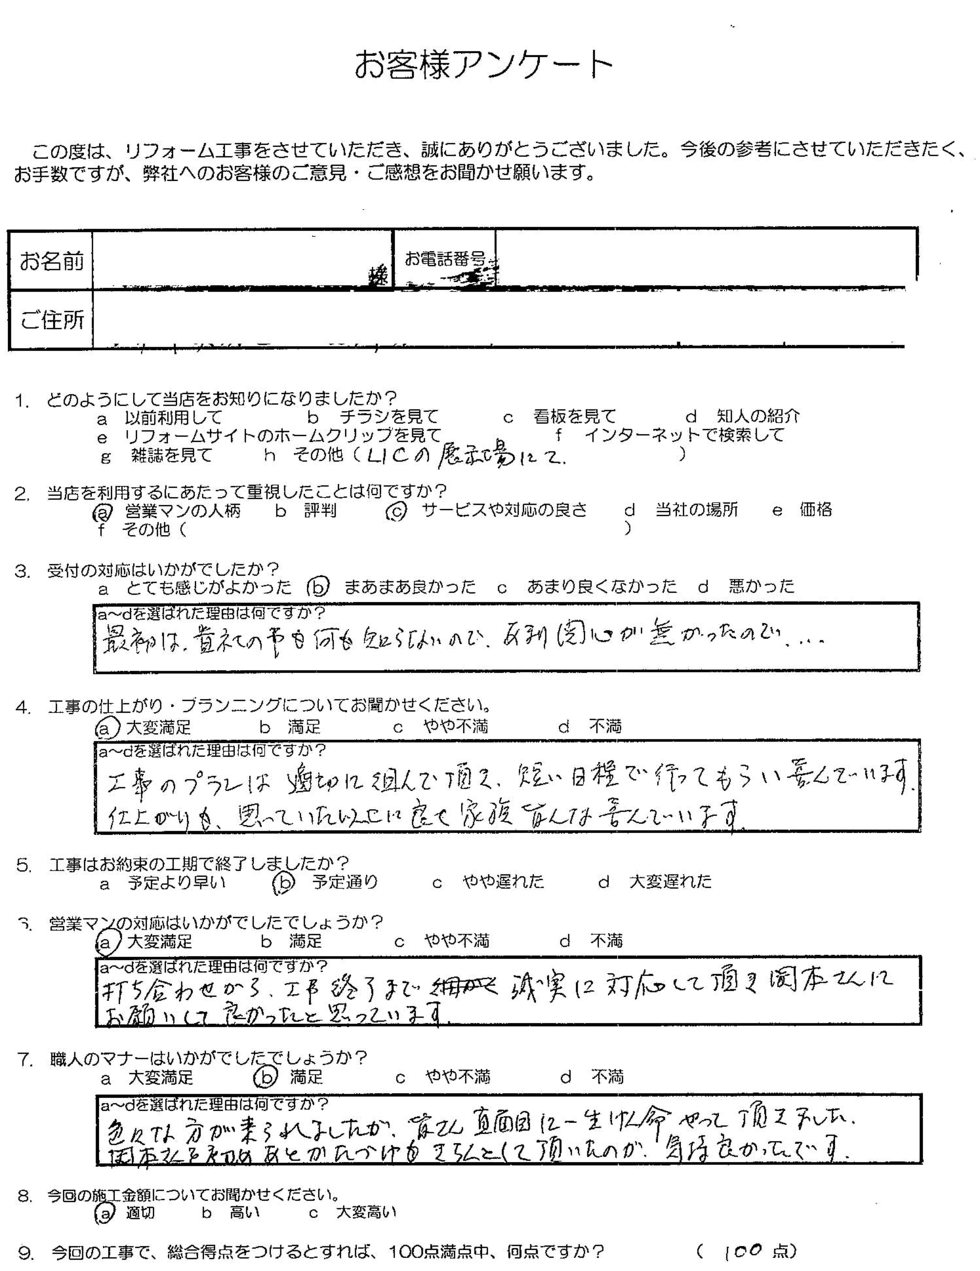 お客様アンケート
この度は、リフォーム工事をさせていただき、誠にありがとうございました。今後の参考にさせていただきたく、
お手数ですが、弊社へのお客様のご意見・ご感想をお聞かせ願います。
お名前 様 お電話番号
ご住所
1. どのようにして当店をお知りになりましたか？
a 以前利用して b チラシを見て c 看板を見て d 知人の紹介
e リフォームサイトのホームクリップを見て f インターネットで検索して
g 雑誌を見て h その他（LICの展示場にて. ）
2. 当店を利用するにあたって重視したことは何ですか？
ⓐ 営業マンの人柄 b 評判 ⓒ サービスや対応の良さ d 当社の場所 e 価格
f その他（ ）
3. 受付の対応はいかがでしたか？
a とても感じがよかった ⓑ まあまあ良かった c あまり良くなかった d 悪かった
a～dを選ばれた理由は何ですか？
最初は、貴社の事も何も知らないので、余り関心が無かったので....
4. 工事の仕上がり・プランニングについてお聞かせください。
ⓐ 大変満足 b 満足 c やや不満 d 不満
a～dを選ばれた理由は何ですか？
工事のプランは適切に組んで頂き、短い日程で行ってもらい喜んでいます.
仕上がりも、思っていた以上に良く家族皆んな喜んでいます.
5. 工事はお約束の工期で終了しましたか？
a 予定より早い ⓑ 予定通り c やや遅れた d 大変遅れた
6. 営業マンの対応はいかがでしたでしょうか？
ⓐ 大変満足 b 満足 c やや不満 d 不満
a～dを選ばれた理由は何ですか？
打ち合わせから、工事終了まで 誠実に対応して頂き岡本さんに
お願いして良かったと思っています.
7. 職人のマナーはいかがでしたでしょうか？
a 大変満足 ⓑ 満足 c やや不満 d 不満
a～dを選ばれた理由は何ですか？
色々な方が来られましたが、皆さん真面目に一生けん命やって頂きました.
岡本さんを初めあとかたづけもきちんとして頂いたのが、気持良かったです.
8. 今回の施工金額についてお聞かせください。
ⓐ 適切 b 高い c 大変高い
9. 今回の工事で、総合得点をつけるとすれば、100点満点中、何点ですか？ （ 100 点）